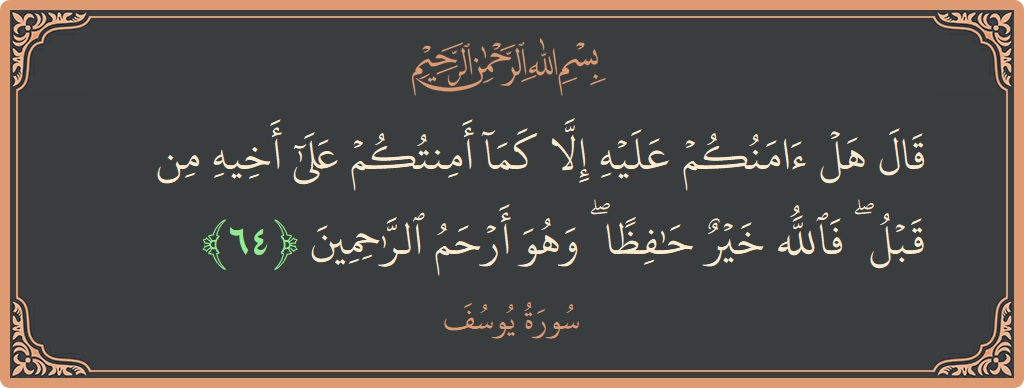 بِسْمِ اللهِ الرَّحْمٰنِ الرَّحِيْمِ
قَالَ هَلْ ءَامَنُكُمْ عَلَيْهِ إِلَّا كَمَآ أَمِنتُكُمْ عَلَىٰٓ أَخِيهِ مِن
قَبْلُ ۖ فَٱللَّهُ خَيْرٌ حَـٰفِظًا ۖ وَهُوَ أَرْحَمُ ٱلرَّٰحِمِينَ ﴿٦٤﴾
سُورَةُ يُوسُفَ